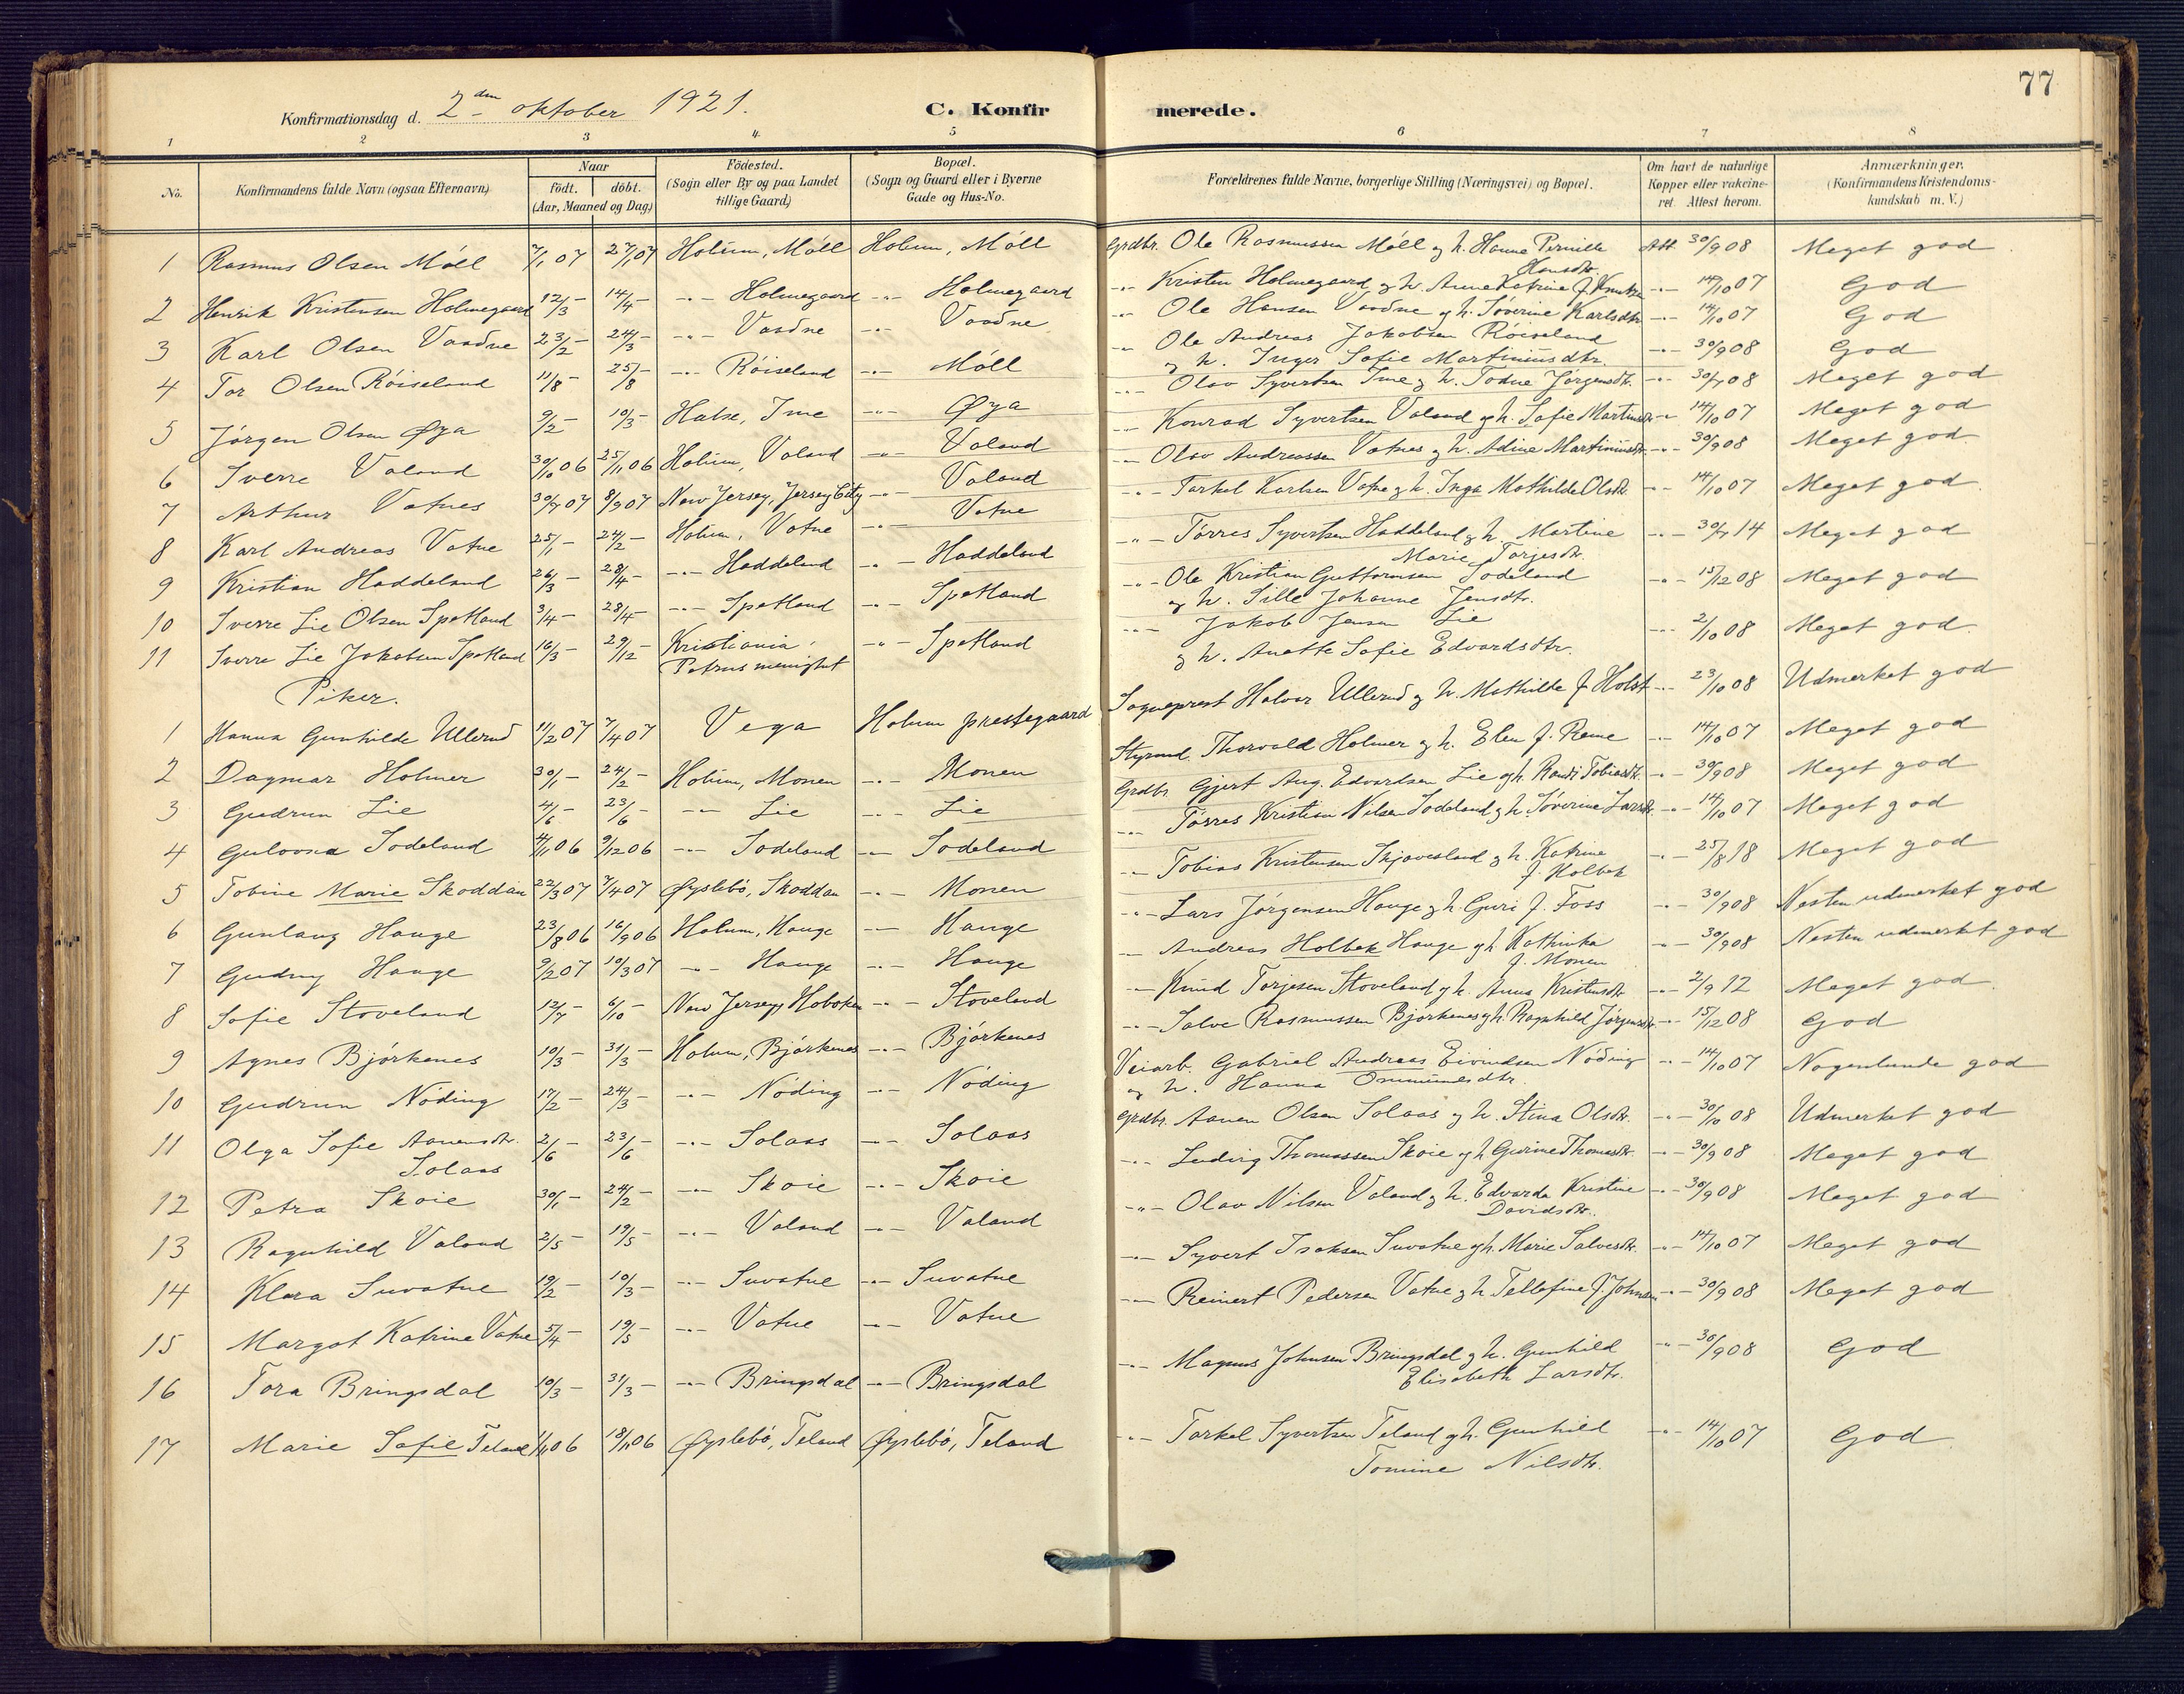 77
Konfirmationsdag d. 2den oktober 1921.
C. Konfirmerede.
1 2 3 4 5 6 7 8
No.
Konfirmandens fulde Navn (ogsaa Efternavn)
Naar
født. døbt.
(Aar, Maaned og Dag)
Födested.
(Sogn eller By og paa Landet
tillige Gaard)
Bopæl.
(Sogn og Gaard eller i Byerne
Gade og Hus-No.
Forældrenes fulde Navne, borgerlige Stilling (Næringsvei) og Bopæl.
Om havt de naturlige
Kopper eller vakcine-
ret. Attest herom.
Anmærkninger.
(Konfirmandens Kristendoms-
kundskab m. V.)
1 Rasmus Olsen Möll 7/1 07 27/1 07 Holum, Möll Holum, Möll Grdbr. Ole Rasmussen Möll og h. Hanne Pernille Hansdtr. Att. 30/9 08 Meget god
2 Henrik Kristensen Holmegaard 12/3 - 14/4 - -"- Holmegaard -"- Holmegaard -"- Kristen Holmegaard og h. Anne Katrine f. Knutsen -"- 14/10 07 God
3 Karl Olsen Vaadne 23/2 - 24/3 - -"- Vaadne -"- Vaadne -"- Ole Hansen Vaadne og h. Söverine Karlsdtr. -"- 14/10 07 God
4 Tor Olsen Röiseland 11/8 - 25/8 - -"- Röiseland -"- Möll -"- Ole Andreas Jakobsen Röiseland og h. Inger Sofie Martiniusdtr. -"- 30/9 08 God
5 Jörgen Olsen Øya 9/2 - 10/3 - Halse, Ime -"- Øya -"- Olav Syvertsen Ime og h. Todne Jørgensdtr. -"- 30/9 08 Meget god
6 Sverre Valand 30/10 06 25/11 06 Holum, Valand -"- Valand -"- Konrad Syvertsen Valand og h. Sofie Martinsdtr. -"- 14/10 07 Meget god
7 Arthur Vatnes 30/7 07 8/9 07 New Jersey, Jersey City -"- Valand -"- Olav Andreassen Vatnes og h. Adine Martiniusdtr. -"- 30/9 08 Meget god.
8 Karl Andreas Vatne 25/1 - 24/2 - Holum, Vatne -"- Vatne -"- Tarkel Karlsen Vatne og h. Inga Mathilde Olsdtr. -"- 14/10 07 Meget god.
9 Kristian Haddeland 26/3 - 28/4 - -"- Haddeland -"- Haddeland -"- Törres Syvertsen Haddeland og h. Martine Marie Torjesdtr. -"- 30/7 14 Meget god
10 Sverre Lie Olsen Spetland 3/4 - 28/4 - -"- Spetland -"- Spetland -"- Ole Kristian Guttormsen Sodeland og h. Sille Johanne Jensdtr. -"- 15/12 08 Meget god
11 Sverre Lie Jakobsen Spetland 16/3 - 29/12 - Kristiania Petrus menighet -"- Spetland -"- Jakob Jensen Lie og h. Anette Sofie Edvardsdtr. -"- 2/10 08 Meget god.
Piker.
1 Hanna Gunhilde Ullerud 11/2 07 7/4 07 Vega Holum prestegaard Sogneprest Halvor Ullerud og h. Mathilde f. Holst -"- 23/10 08 Udmerket god
2 Dagmar Holmer 30/1 - 24/2 - Holum, Monen -"- Monen Styrmd. Thorvald Holmer og h. Elen f. Reme -"- 14/10 07 Meget god
3 Gudrun Lie 4/6 - 23/6 - -"- Lie -"- Lie Grdbr. Gjert Aug. Edvardsen Lie og h. Randi Tobiasdtr. -"- 30/9 08 Meget god
4 Gulovna Sodeland 4/11 06 9/12 06 -"- Sodeland -"- Sodeland -"- Törres Kristian Nilsen Sodeland og h. Söverine Larsdtr. -"- 14/10 07 Meget god
5 Tobine Marie Skoddan 22/3 07 7/4 07 Øyslebö, Skoddan -"- Monen -"- Tobias Kristensen Skjævesland og h. Katrine f. Holbek -"- 25/8 18 Meget god
6 Gunlaug Hauge 23/8 06 16/9 06 Holum, Hauge -"- Hauge -"- Lars Jörgensen Hauge og h. Guri f. Foss -"- 30/9 08 Nesten udmerket god
7 Gudny Hauge 9/2 07 10/3 07 -"- Hauge -"- Hauge -"- Andreas Holbek Hauge og h. Kathinka f. Monen -"- 30/9 08 Nesten udmerket god
8 Sofie Stoveland 12/7 - 6/10 - New Jersey, Hoboken -"- Stoveland -"- Knud Torjesen Stoveland og h. Anna Kristensdtr. -"- 2/9 12 Meget god.
9 Agnes Björkenes 10/3 - 31/3 - Holum, Björkenes -"- Björkenes -"- Salve Rasmussen Bjorkenes og h. Ragnhild Jörgensdtr. -"- 15/12 08 God
10 Gudrun Nöding 17/2 - 24/3 - -"- Nöding -"- Nöding Veiarb. Gabriel Andreas Eivindsen Nöding og h. Hanna Ommundsdtr. -"- 14/10 07 Nogenlunde god
11 Olga Sofie Aanensdtr. Solaas 2/6 - 23/6 - -"- Solaas -"- Solaas Grdbr. Aanen Olsen Solaas og h. Stina Olsdtr. -"- 30/10 08 Udmerket god
12 Petra Skoie 30/1 - 24/2 - -"- Skoie -"- Skoie -"- Ludvig Thomassen Skoie og h. Gurine Thomasdtr. -"- 30/9 08 Meget god
13 Ragnhild Valand 2/5 - 19/5 - -"- Valand -"- Valand -"- Olav Nilsen Valand og h. Edvarda Kristine Davidsdtr. -"- 30/9 08 Meget god
14 Klara Suvatne 19/2 - 10/3 - -"- Suvatne -"- Suvatne -"- Syvert Isaksen Suvatne og h. Marie Salvesdtr. -"- 14/10 07 Meget god
15 Margot Katrine Vatne 5/4 - 19/5 - -"- Vatne -"- Vatne -"- Reinert Pedersen Vatne og h. Tellefine f. Johnsen -"- 30/9 08 Meget god
16 Tora Bringsdal 10/3 - 31/3 - -"- Bringsdal -"- Bringsdal -"- Magnus Johnsen Bringsdal og h. Gunhild Elisabeth Larsdtr. -"- 30/9 08 God
17 Marie Sofie Teland 1/11 06 18/11 06 Øyslebö, Teland Øyslebö, Teland -"- Tarkel Syvertsen Teland og h. Gunhild Tomine Nilsdtr. -"- 14/10 07 God